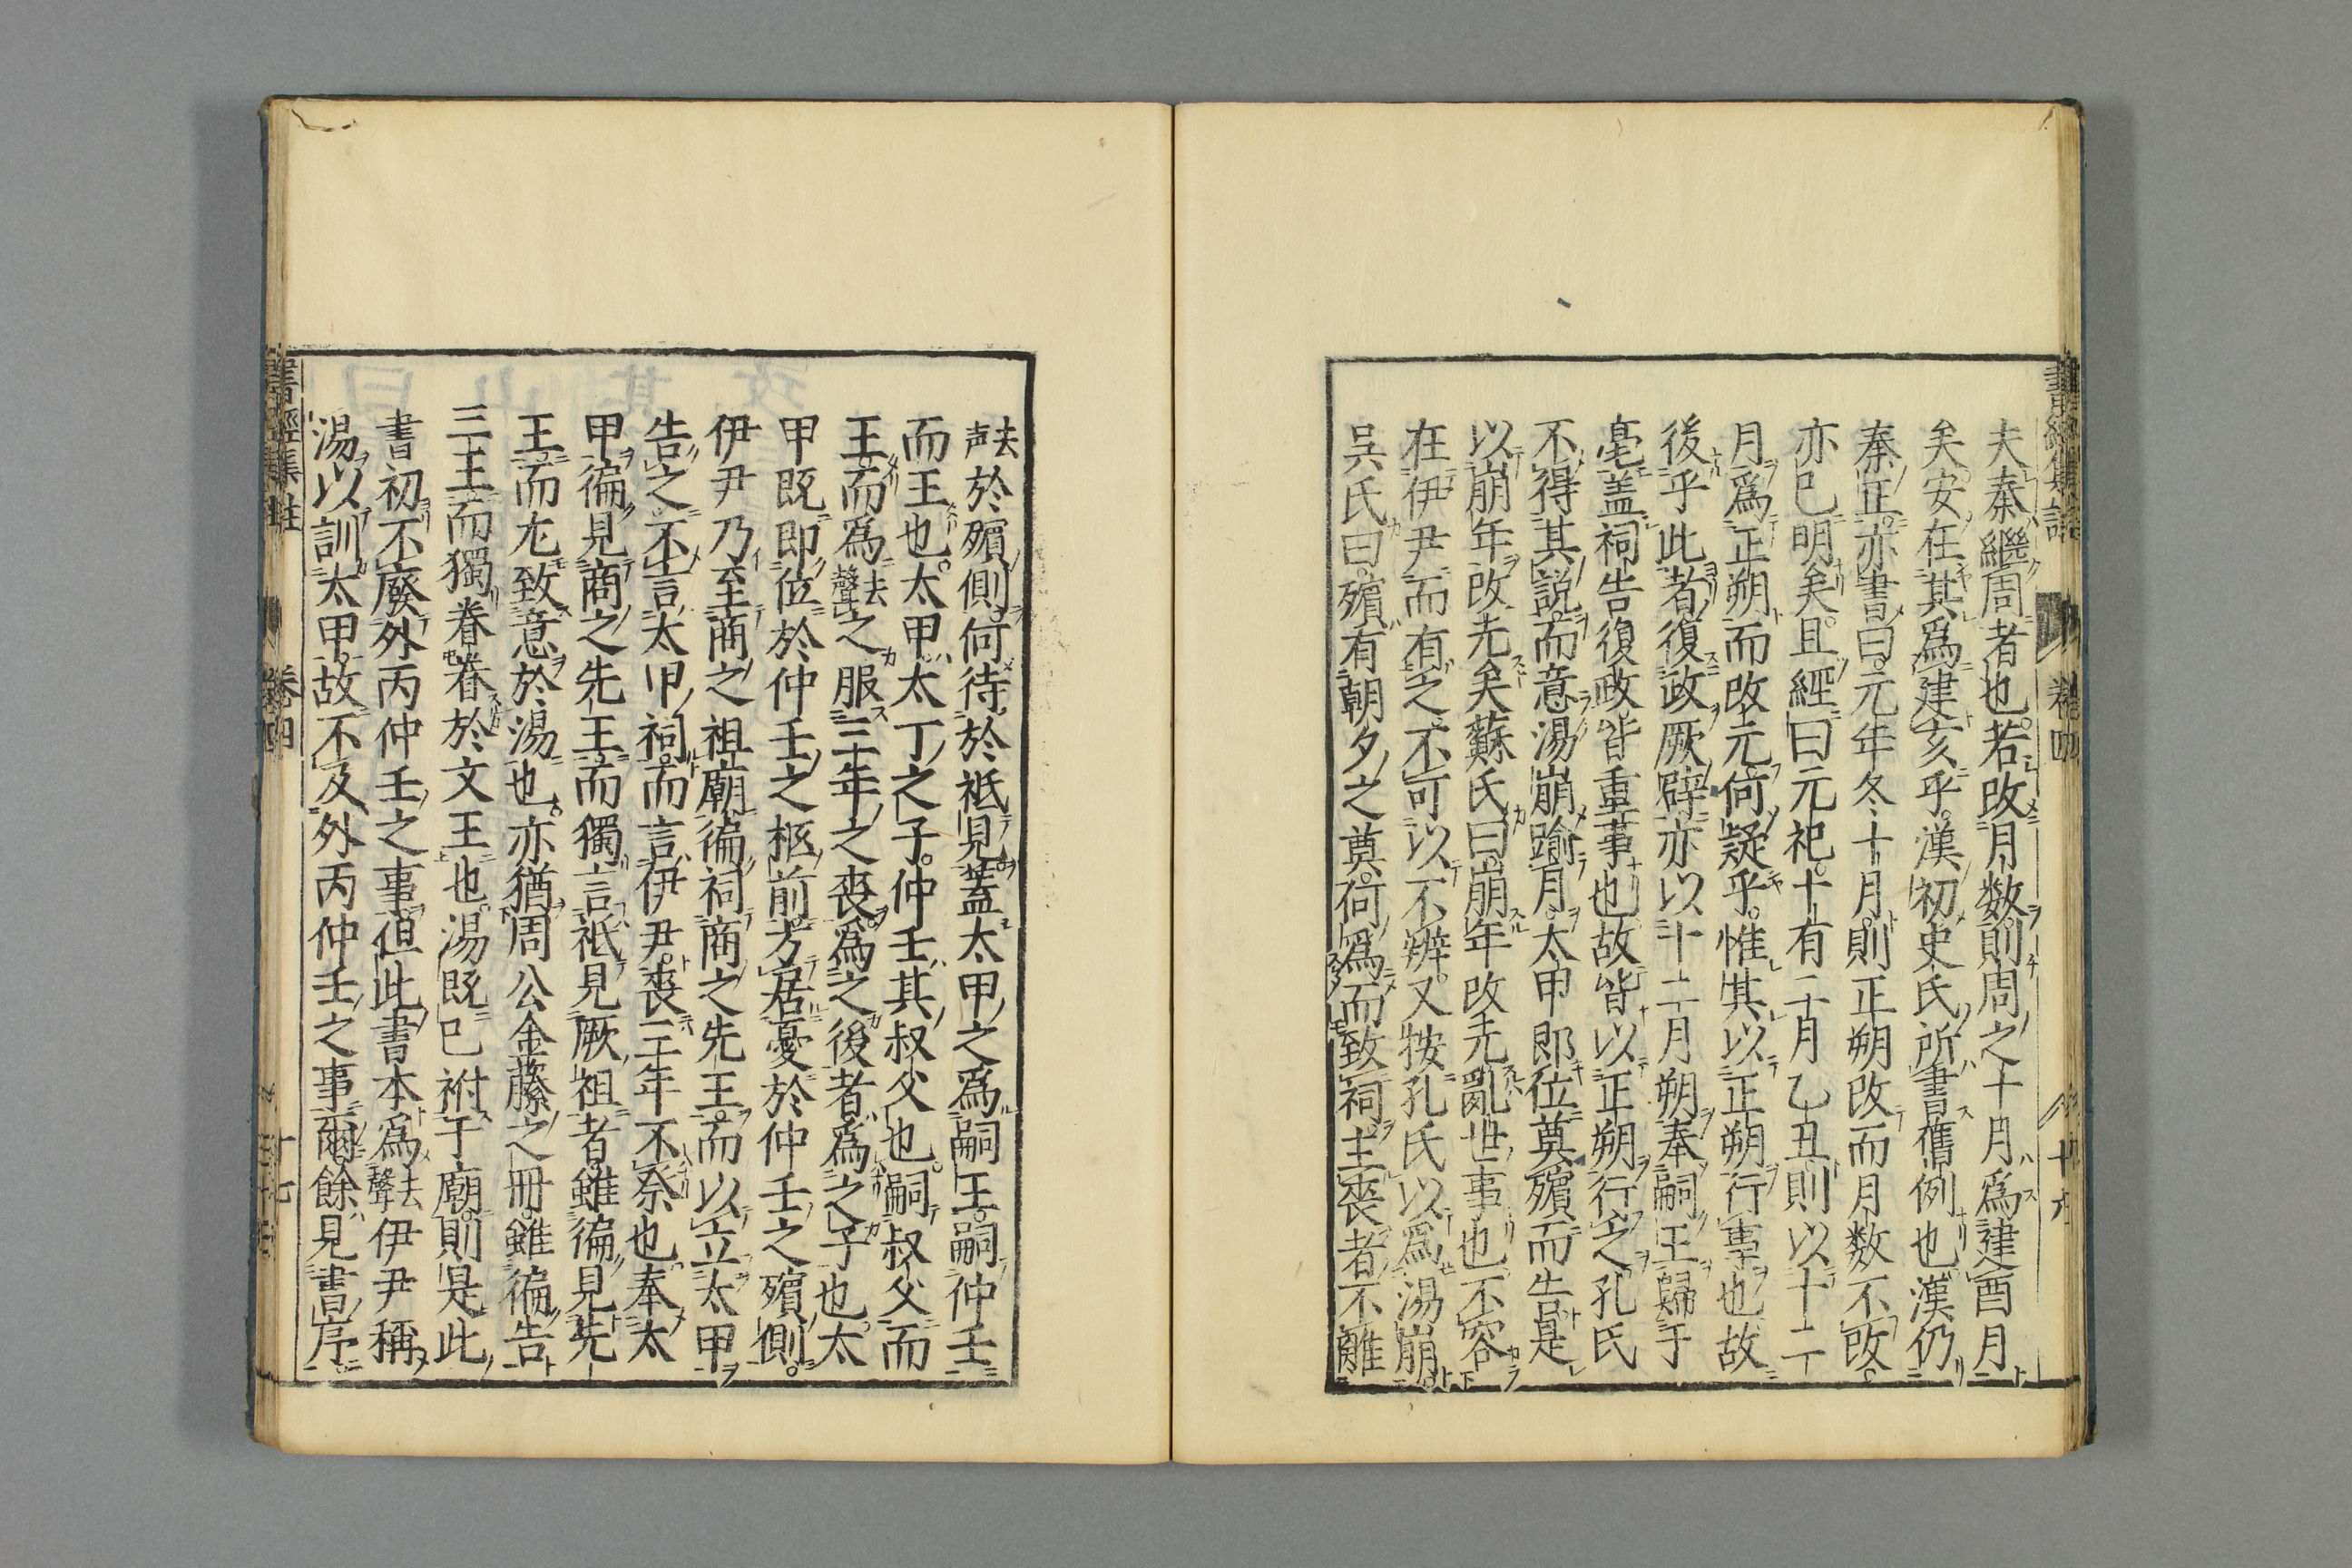 夫秦繼周者也。若改月数則周之十月爲建酉月
矣安在其爲建亥乎。漢初史氏所書舊例也漢仍
秦正。亦書曰。元年冬十月。則正朔改而月数不改。
亦已明矣。且經曰元祀。十有二月乙丑則以十二
月爲正朔而改元何疑乎。惟其以正朔行事也故
後乎此者復政厥辟亦以十二月朔奉嗣王歸于
亳盖祠告復政。皆重事也故皆以正朔行之孔氏
不得其説。而意湯崩踰月。太甲即位奠殯而告。是
以崩年改元矣蘇氏曰。崩年改元亂世事也不容
在伊尹而有之。不可以不辨。又按孔氏以爲湯崩。
呉氏曰。殯有朝夕之奠。何爲而致祠。主喪者不離
去声於殯側何待於祗見蓋太甲之爲嗣王。嗣仲壬
而王也。太甲太丁之子。仲壬其叔父也。嗣叔父而
王而爲去聲之服三年之喪爲之後者爲之子也。太
甲既即位於仲壬之柩前。方居憂於仲壬之殯側。
伊尹乃至商之祖廟徧祠商之先王。而以立太甲
告之不言太甲祠。而言伊尹。喪三年不祭也奉太
甲徧見商之先王。而獨言祗見厥祖者雖徧見先
王。而尢致意於湯也。亦猶周公金縢之冊。雖徧告
三王而獨眷眷於文王也。湯既已祔于廟。則是此
書初不廢外丙仲壬之事但此書本爲去聲伊尹稱
湯以訓太甲。故不及外丙仲壬之事爾。餘見書序
書經集註
卷四
十六
書經集註
卷四
十七